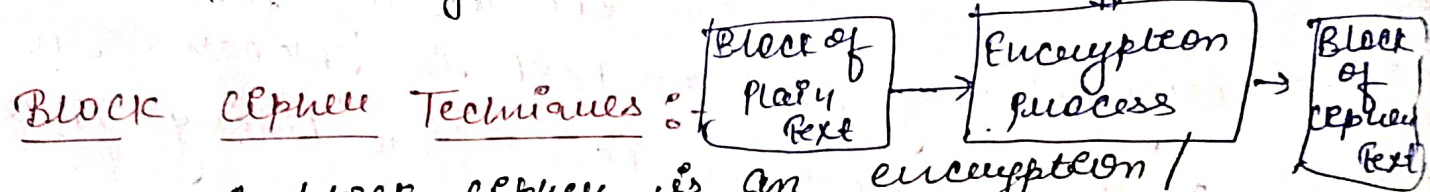 Block Cipher Techniques :-
Block of
Plain
Text
Encryption
process
Block
of
cipher
Text
block cipher is an encryption /